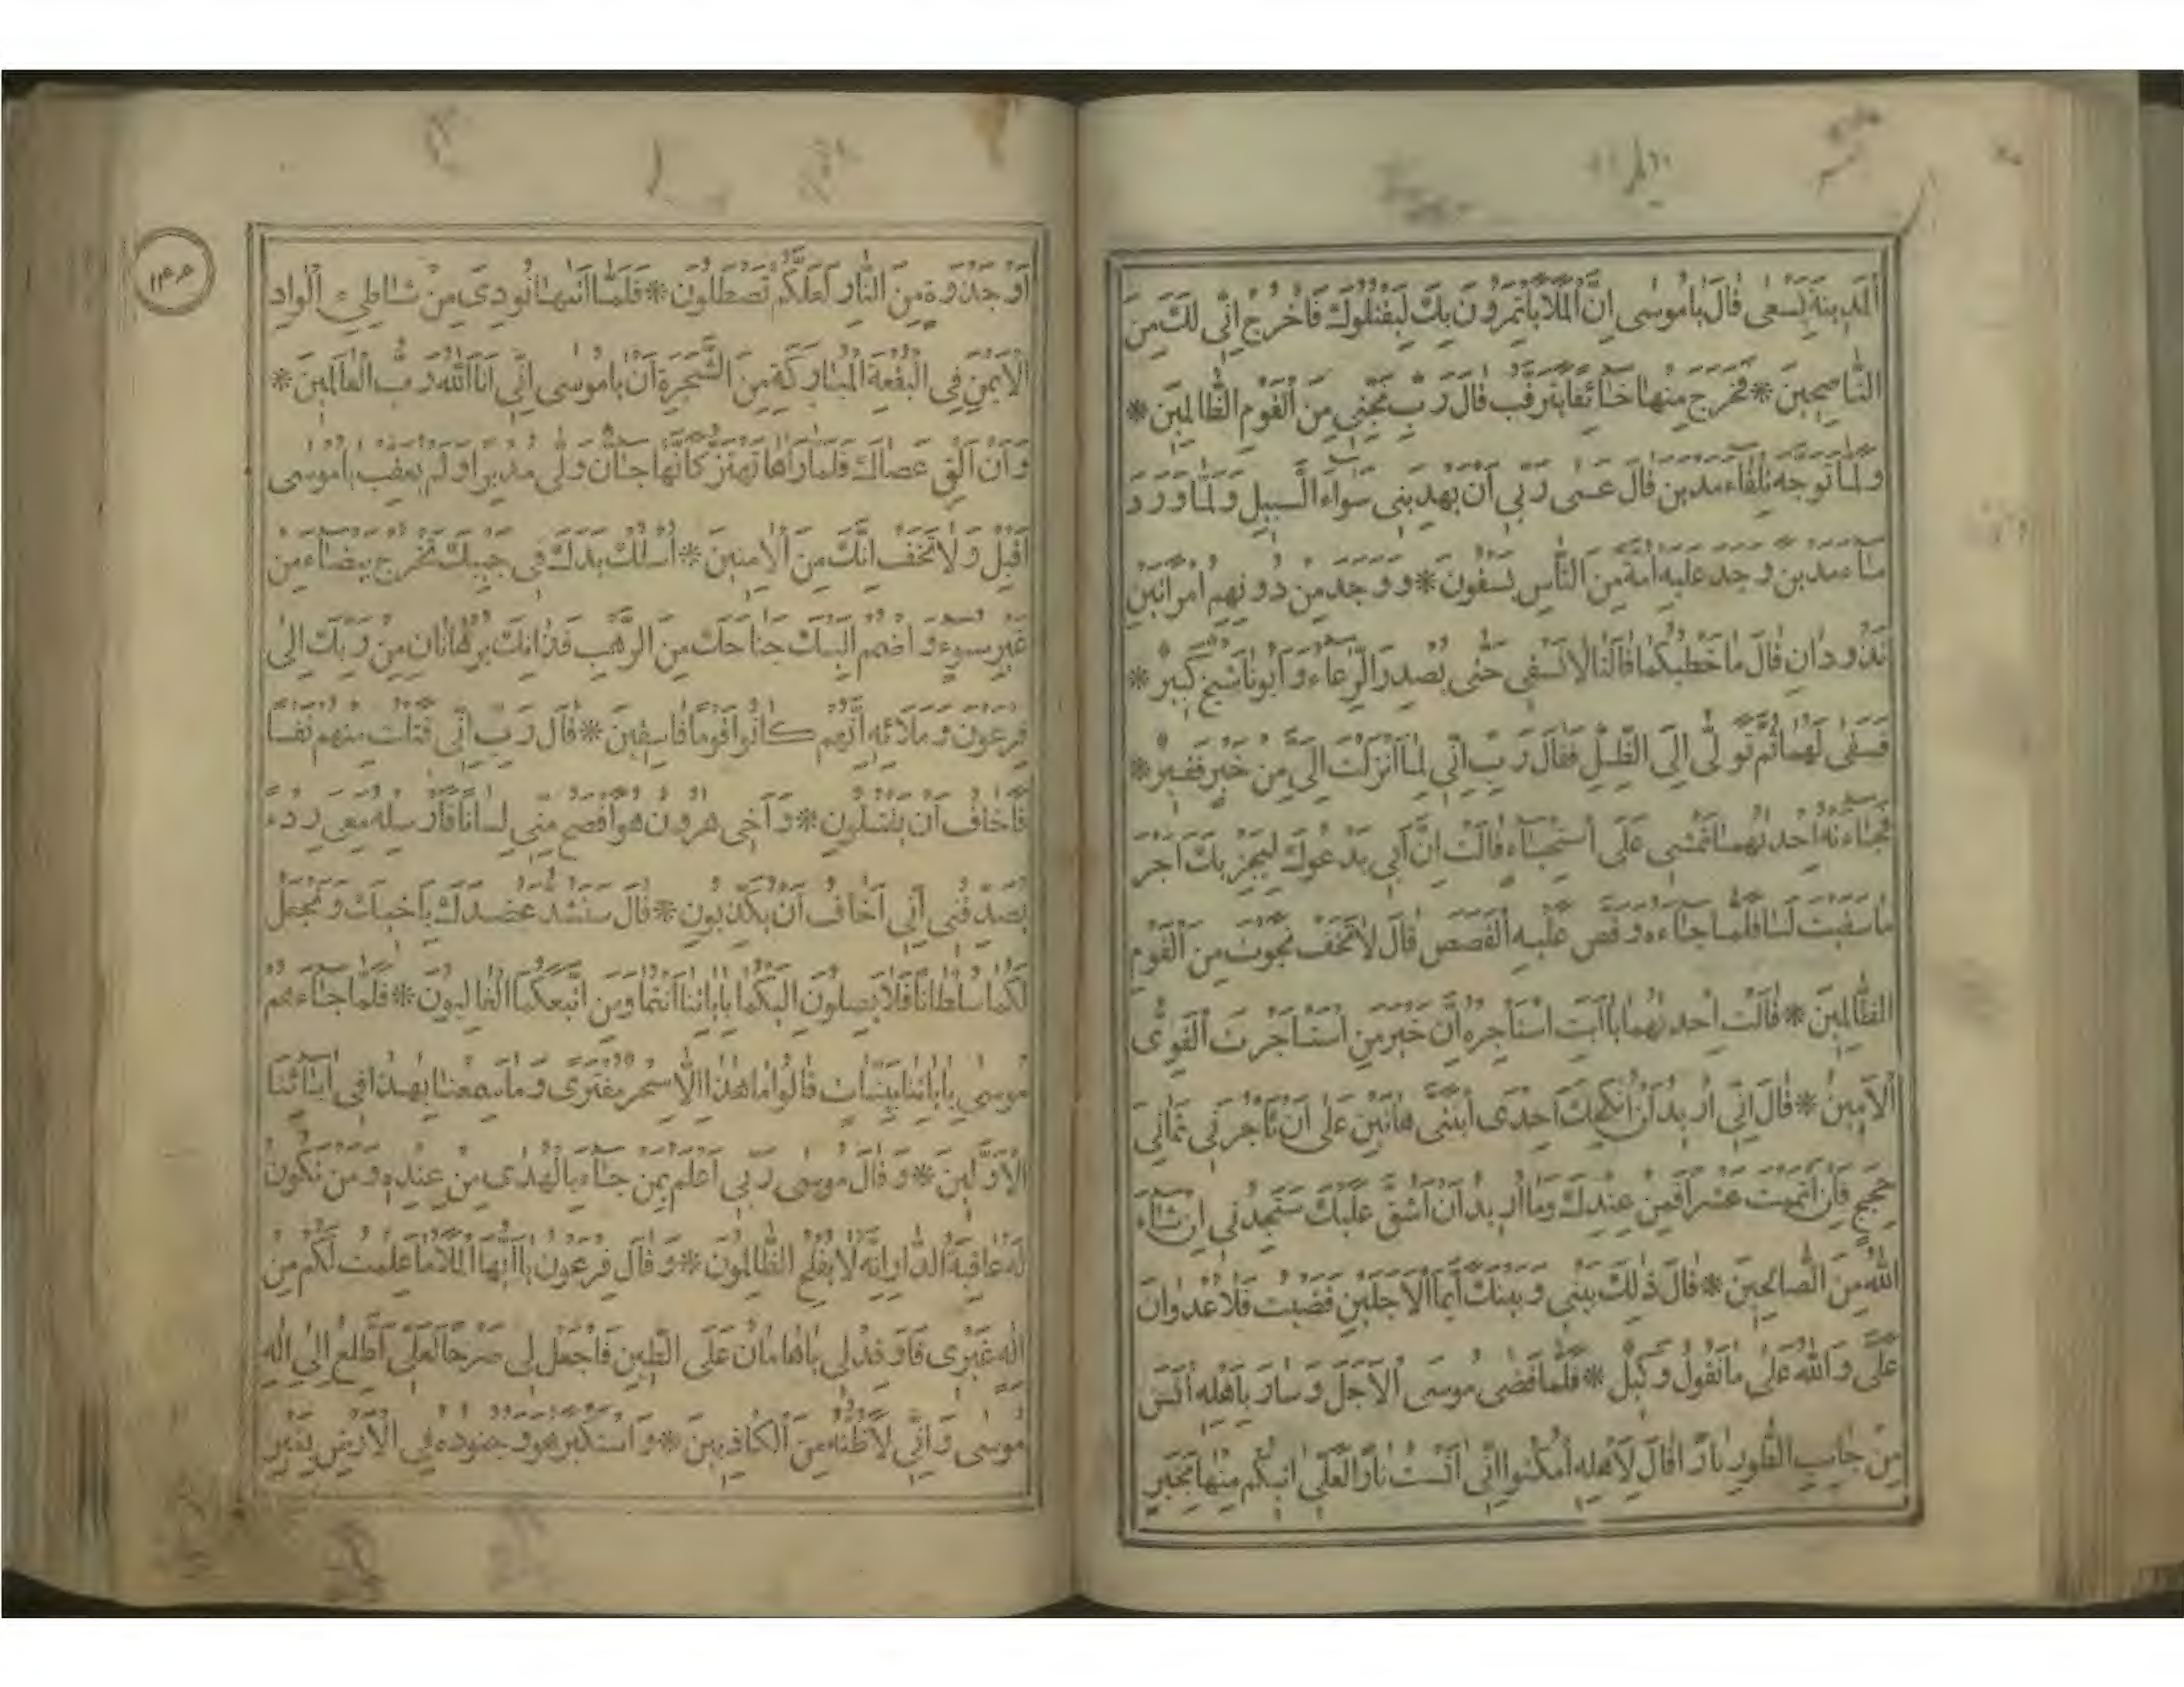 المدينة يسعى قال يا موسى ان الملا ياتمرون بك ليقتلوك فاخرج انى لك من
الناصحين * فخرج منها خائفا يترقب قال رب نجنى من القوم الظالمين *
ولما توجه تلقاء مدين قال عسى ربى ان يهدينى سواء السبيل ولما ورد
ماء مدين وجد عليه امة من الناس يسقون * ووجد من دونهم امراتين
تذودان قال ما خطبكما قالتا لا نسقى حتى يصدر الرعاء وابونا شيخ كبير *
فسقى لهما ثم تولى الى الظل فقال رب انى لما انزلت الى من خير فقير *
فجاءته احديهما تمشى على استحياء قالت ان ابى يدعوك ليجزيك اجر
ما سقيت لنا فلما جاءه وقص عليه القصص قال لا تخف نجوت من القوم
الظالمين * قالت احديهما يا ابت استاجره ان خير من استاجرت القوى
الامين * قال انى اريد ان انكحك احدى ابنتى هاتين على ان تاجرنى ثمانى
حجج فان اتممت عشرا فمن عندك وما اريد ان اشق عليك ستجدنى ان شاء
الله من الصالحين * قال ذلك بينى وبينك ايما الاجلين قضيت فلا عدوان
على والله على ما نقول وكيل * فلما قضى موسى الاجل وسار باهله انس
من جانب الطور نارا قال لاهله امكثوا انى انست نارا لعلى اتيكم منها بخبر
١٣٤٤
او جذوة من النار لعلكم تصطلون * فلما اتيها نودى من شاطئ الواد
الايمن فى البقعة المباركة من الشجرة ان يا موسى انى انا الله رب العالمين *
وان الق عصاك فلما راها تهتز كانها جان ولى مدبرا ولم يعقب يا موسى
اقبل ولا تخف انك من الامنين * اسلك يدك فى جيبك تخرج بيضاء من
غير سوء واضمم اليك جناحك من الرهب فذانك برهانان من ربك الى
فرعون وملائه انهم كانوا قوما فاسقين * قال رب انى قتلت منهم نفسا
فاخاف ان يقتلون * واخى هرون هو افصح منى لسانا فارسله معى ردء
يصدقنى انى اخاف ان يكذبون * قال سنشد عضدك باخيك ونجعل
لكما سلطانا فلا يصلون اليكما باياتنا انتما ومن اتبعكما الغالبون * فلما جاءهم
موسى باياتنا بينات قالوا ما هذا الا سحر مفترى وما سمعنا بهذا فى ابائنا
الاولين * وقال موسى ربى اعلم بمن جاء بالهدى من عنده ومن تكون
له عاقبة الدار انه لا يفلح الظالمون * وقال فرعون يا ايها الملا ما علمت لكم من
اله غيرى فاوقد لى يا هامان على الطين فاجعل لى صرحا لعلى اطلع الى اله
موسى وانى لاظنه من الكاذبين * واستكبر هو وجنوده فى الارض بغير